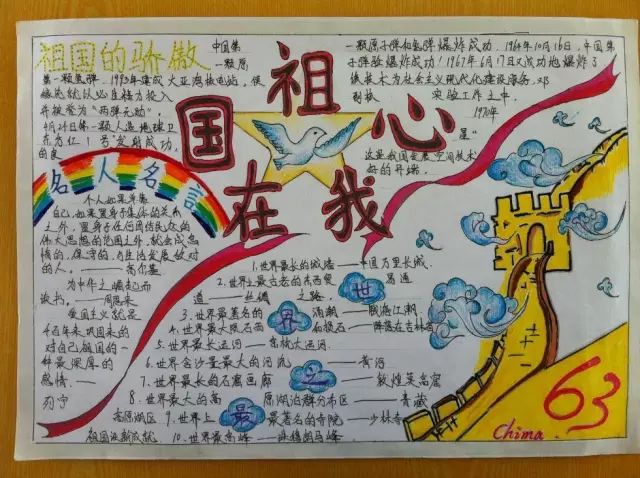 祖国的骄傲
祖国在我心
中国第一颗原子弹和氢弹爆炸成功，1964年10月16日，中国第
一颗氢弹，1993年建成大亚湾核电站，使
子弹爆炸成功！1967年6月17日又成功地爆炸了
核技术为社会主义现代化建设服务，邓
稼先就以
实验工作之中，
并被誉为“两弹元勋”。
1970年
4月24日第一颗人造地球卫
星“
东方红1号”发射成功，
这是我国发展空间技术
的良
好的开端。
名人名言
个人如果单靠
自己，如果置身于集体的关系
之外，置身于任何团结民众的
伟大思想的范围之外，就会成怠
惰的、保守的、与生活发展敌对
的人。——高尔基
为中华之崛起而
读书。——周恩来
爱国主义就是
千百年来巩固来的
对自己祖国的一
种最深厚的
感情。——
列宁
世界之最
1.世界最长的城墙——中国万里长城
2.世界上最古老的东西贸易通
道——丝绸之路
3.世界最著名的涌潮——钱塘江潮
4.世界最大陨石雨和陨石——降落在吉林省
5.世界最大运河——京杭大运河
6.世界含沙量最大的河流——黄河
7.世界最长的石窟画廊——敦煌莫高窟
8.世界最大的高原湖泊群分布区——青藏
高原湖区
9.世界上最著名的寺院——少林寺
祖国新成就
10.世界最高峰——珠穆朗玛峰
63
Chima